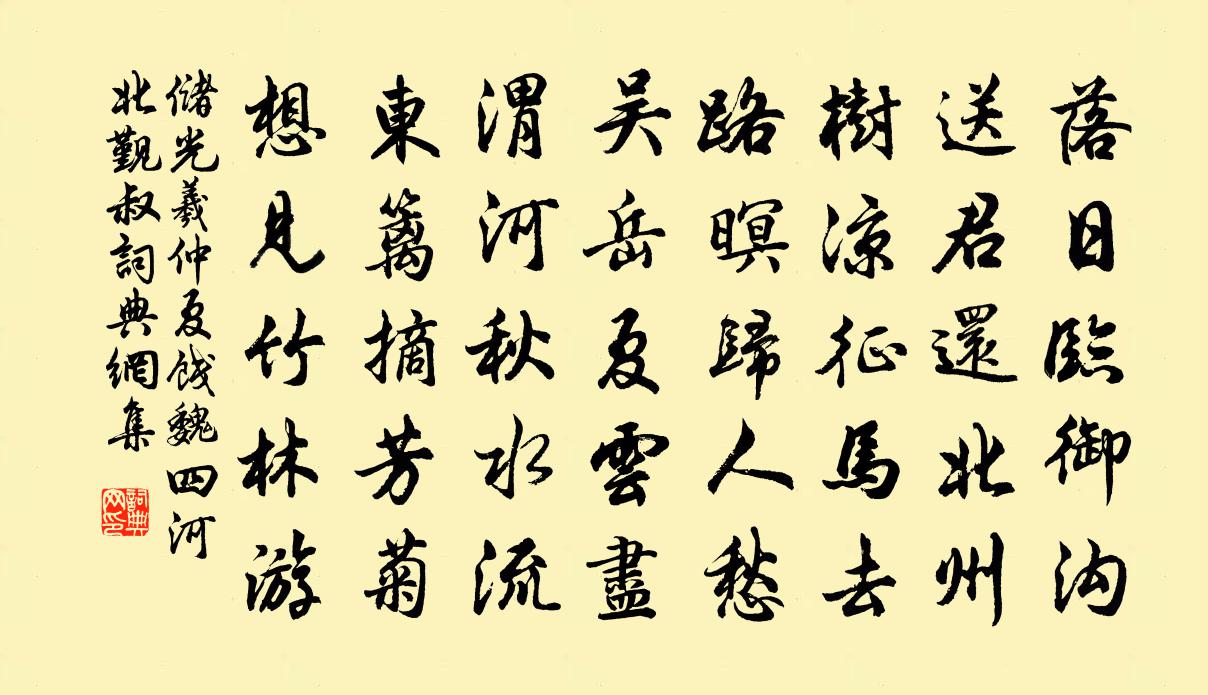 落日臨御沟
送君還北州
樹涼征馬去
路暝歸人愁
吴岳夏雲盡
渭河秋水流
東籬摘芳菊
想見竹林游
儲光羲仲夏餞魏四河
北覲叔詞典網集
詞典网印